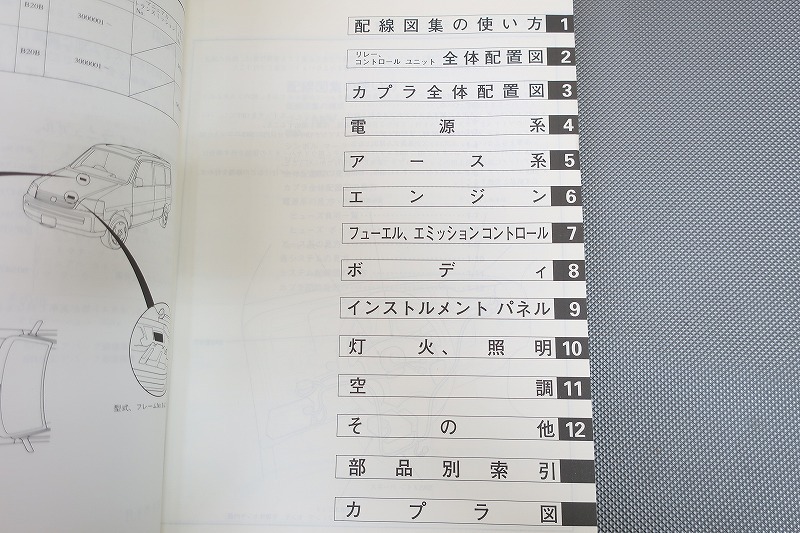 トランスミッション
B20B
3000001 –
B20B
3000001 –
型式、フレームNo.
配線図集の使い方 1
リレー、
コントロール ユニット 全体配置図 2
カプラ全体配置図 3
電源系 4
アース系 5
エンジン 6
フューエル、エミッションコントロール 7
ボディ 8
インストルメント パネル 9
灯火、照明 10
空調 11
その他 12
部品別索引
カプラ図